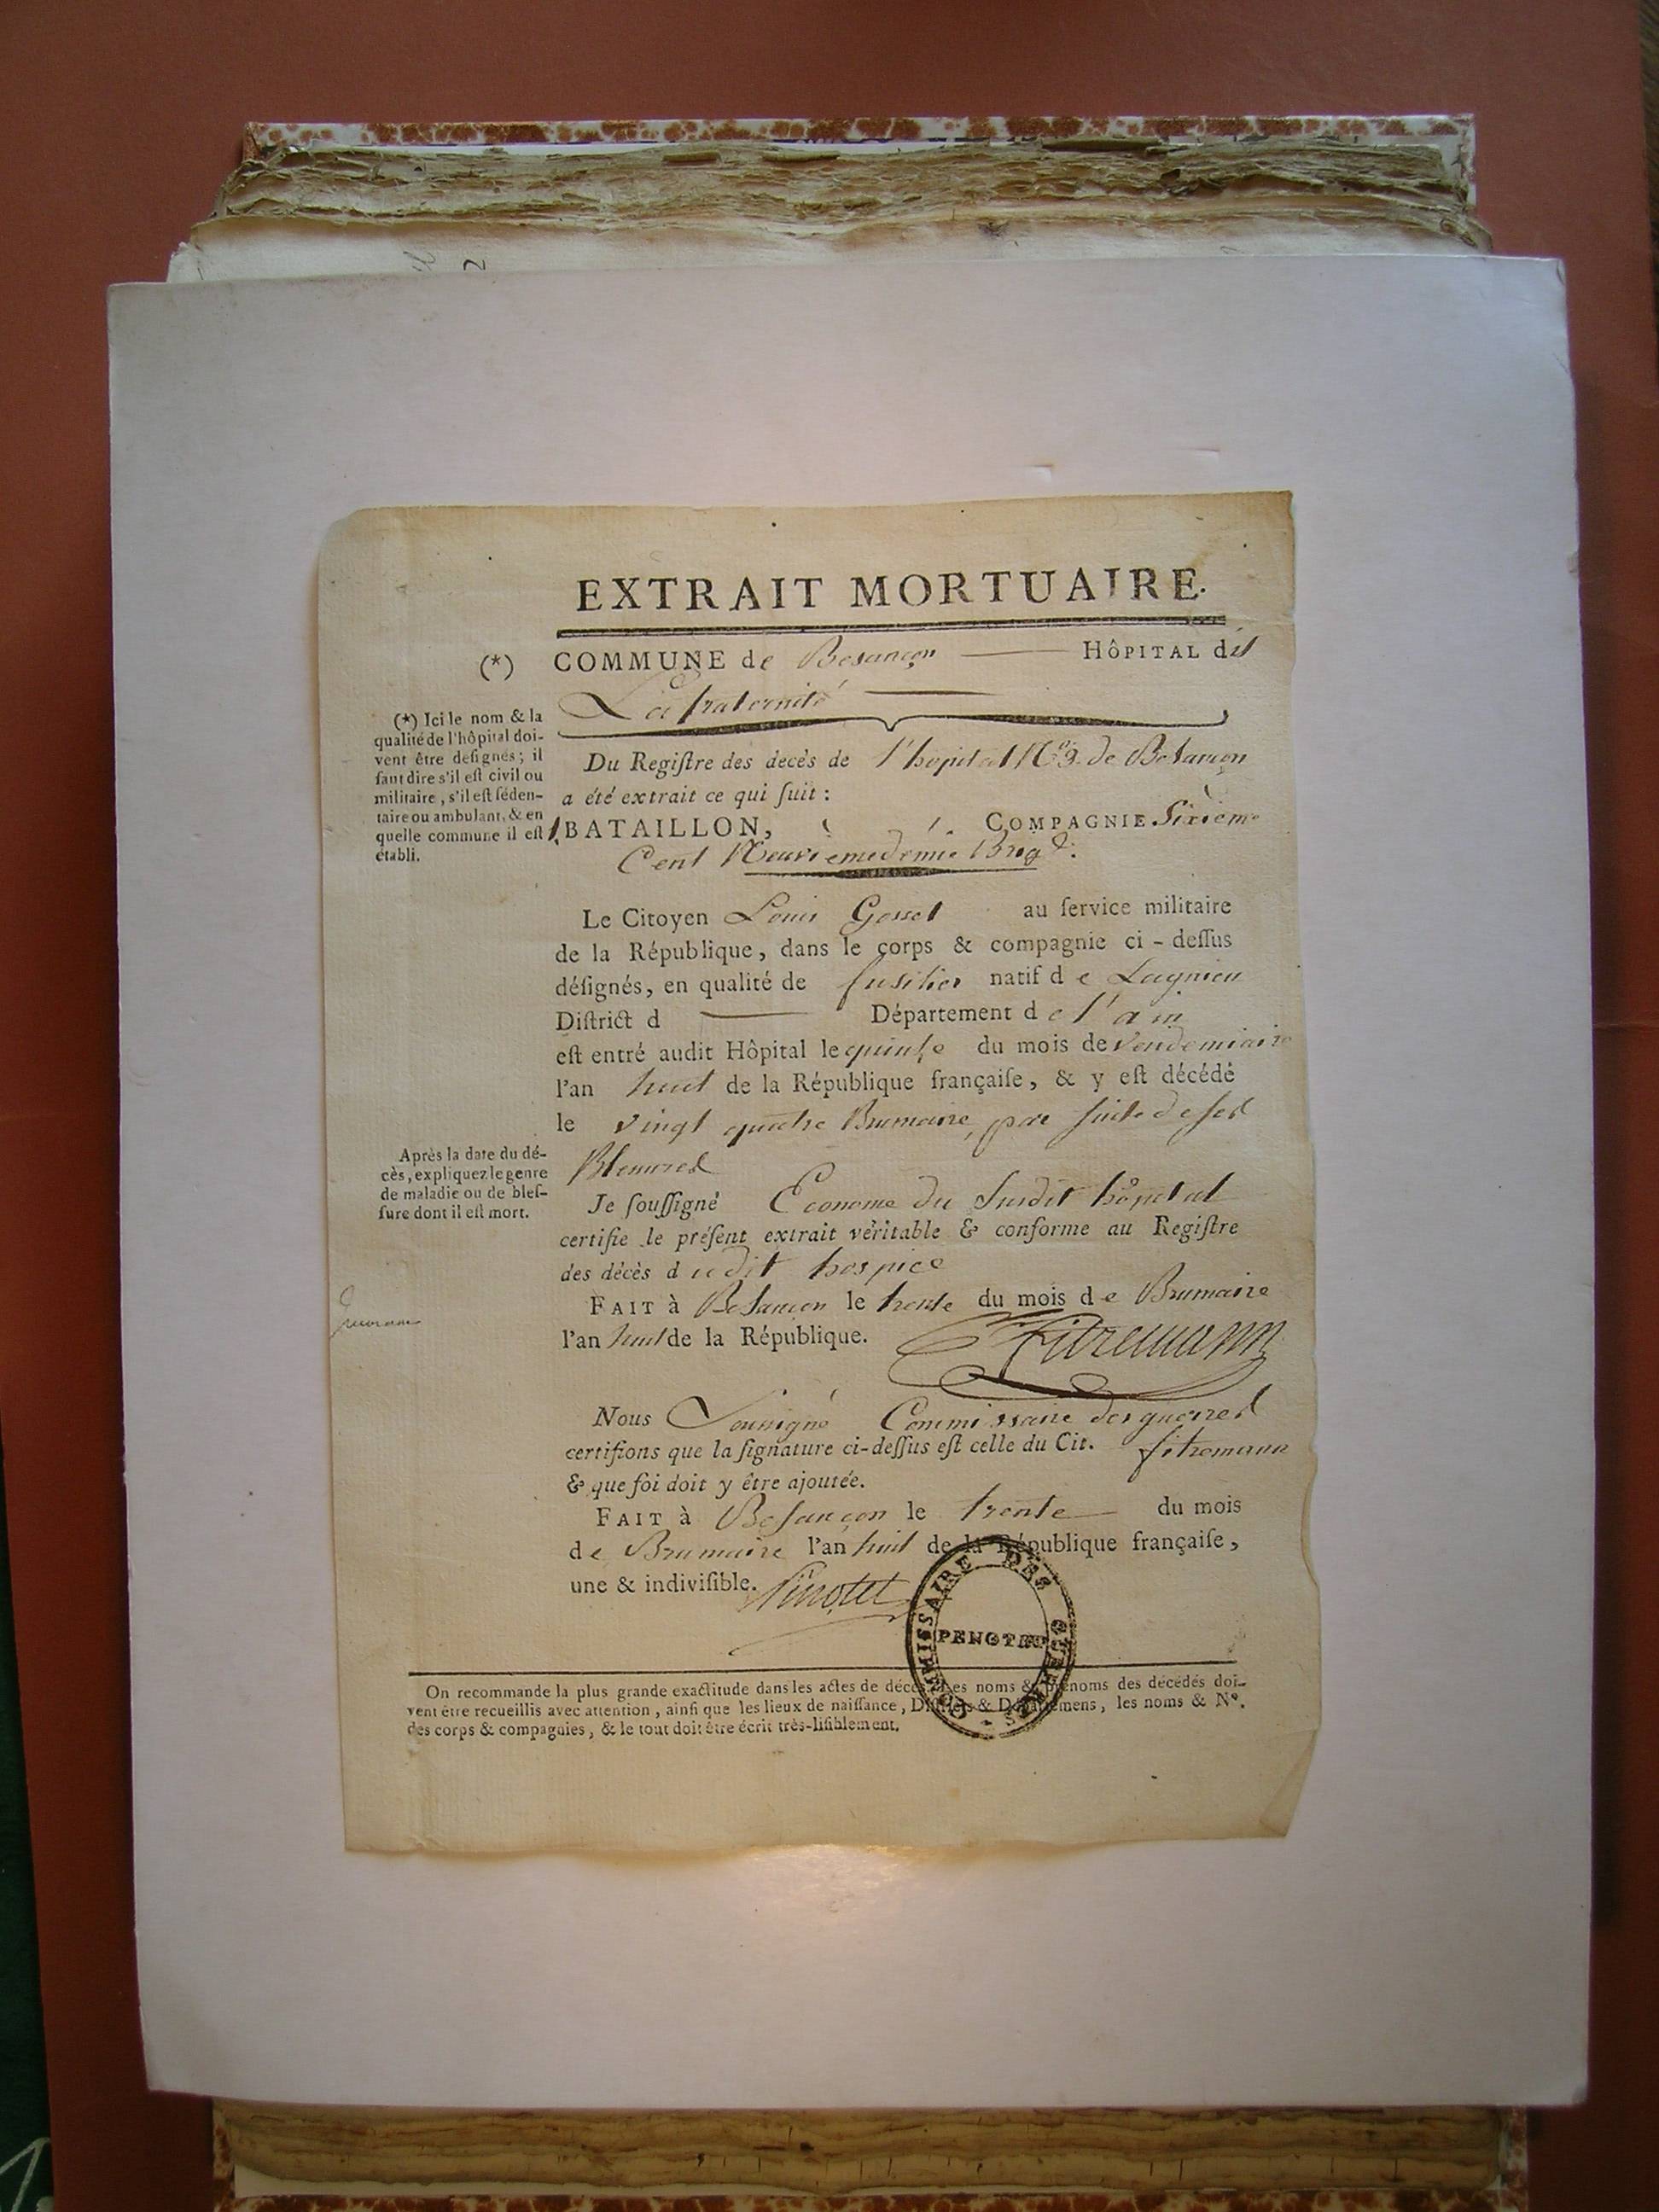 EXTRAIT MORTUAIRE.
(*) COMMUNE de Besançon — HÔPITAL dit
La fraternité —
(*) Ici le nom & la
qualité de l'hôpital doi-
vent être deſignés ; il
faut dire s'il eſt civil ou
militaire, s'il eſt ſéden-
taire ou ambulant, & en
quelle commune il eſt
établi.
Du Regiſtre des decès de l'hopital de Besançon
a été extrait ce qui ſuit :
BATAILLON, COMPAGNIE Sixieme
Cent Neuvieme demie Brig.
Le Citoyen Louis Gosset au ſervice militaire
de la République, dans le corps & compagnie ci-deſſus
déſignés, en qualité de fusilier natif de Lagnieu
Diſtrict d — Département de l'ain
eſt entré audit Hôpital le quinze du mois de Vendemiaire
l'an huit de la République françaiſe, & y eſt décédé
le vingt quatre Brumaire, par suite de ses
Blessures
Après la date du dé-
cès, expliquez le genre
de maladie ou de bleſ-
ſure dont il eſt mort.
Je ſouſſigné Econome du Susdit hôpital
certifie le préſent extrait véritable & conforme au Regiſtre
des décès dudit hospice
FAIT à Besançon le trente du mois de Brumaire
l'an huit de la République. Fitremann
Nous Soussigné Commissaire des guerres
certifions que la ſignature ci-deſſus eſt celle du Cit. fitremann
& que foi doit y être ajoutée.
FAIT à Besançon le trente du mois
de Brumaire l'an huit de la République françaiſe,
une & indiviſible.
COMMISSAIRE DES GUERRES
On recommande la plus grande exactitude dans les actes de décès. Les noms & prénoms des décédés doi-
vent être recueillis avec attention, ainſi que les lieux de naiſſance, Diſtricts & Départemens, les noms & Nº.
des corps & compagnies, & le tout doit être écrit très-liſiblement.